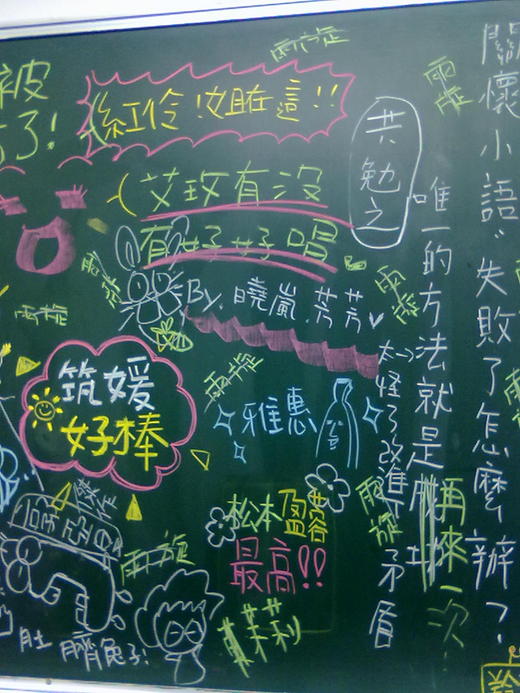 關懷小語:失敗了怎麼辦?
唯一的方法就是
再來一次
共勉之
太怪了改進了矛盾
被
了!
紅伶!妳在這!!
艾玫有沒
有好好唱
By.曉嵐.芬芳
雨旋
雨旋
雨旋
雨旋
雨旋
雨旋
雨旋
雨旋
筑媛
好棒
雅惠
松本盈蓉
最高!!
茉莉
肚臍兔子!